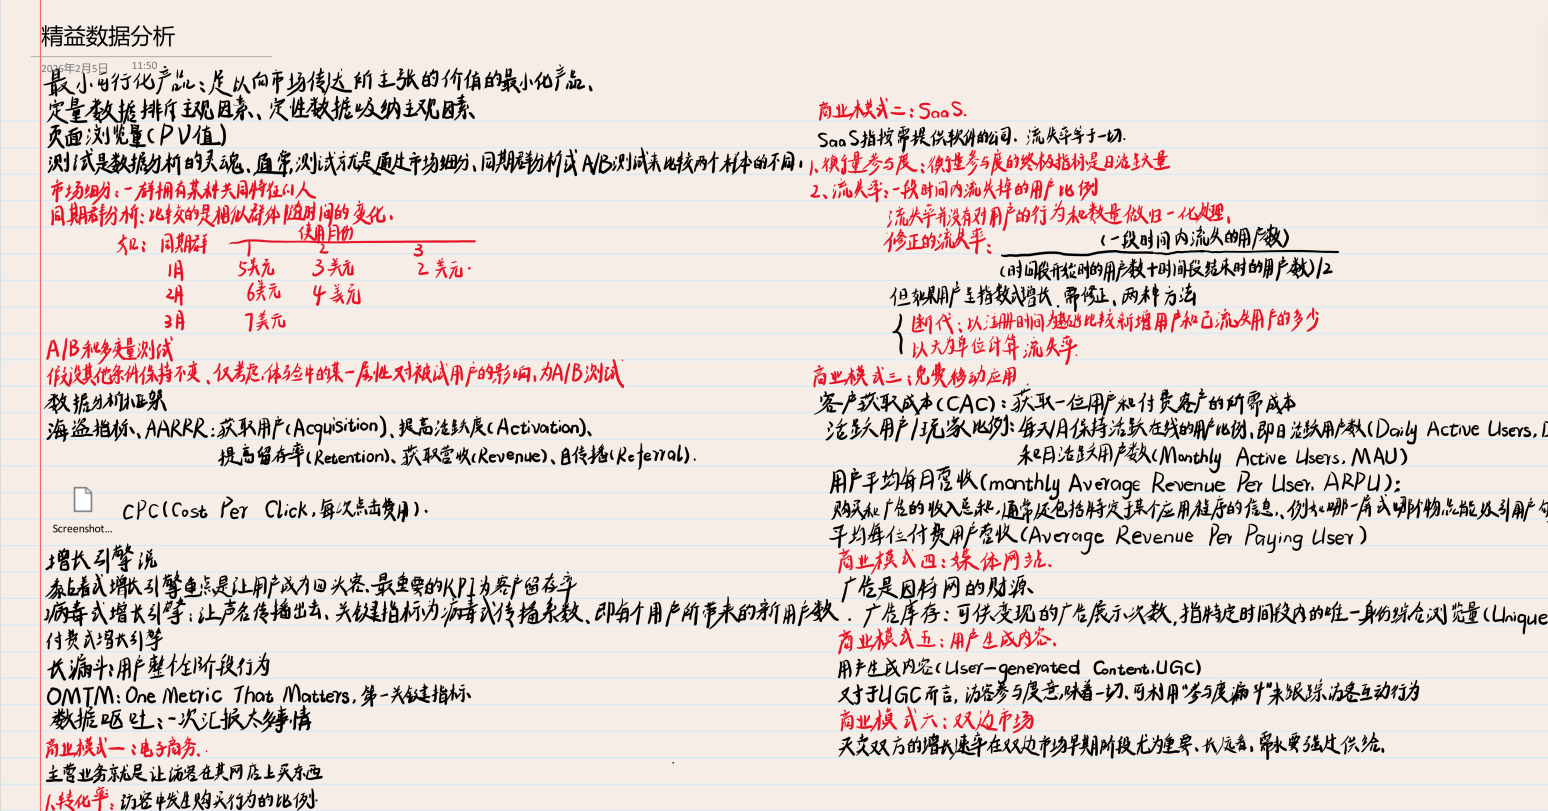 精益数据分析
2026年2月5日 11:50
最小可行化产品：足以向市场传达所主张的价值的最小化产品、
定量数据排斥主观因素、定性数据吸纳主观因素、
页面浏览量(PV值)
测试是数据分析的灵魂、通常,测试就是通过市场细分、同期群分析或A/B测试来比较两个样本的不同,
市场细分：一群拥有某种共同特征的人
同期群分析：比较的是相似群体随时间的变化.
使用月份
同期群 1 2 3
1月 5美元 3美元 2美元.
2月 6美元 4美元
3月 7美元
A/B和多变量测试
假设其他条件保持不变、仅考虑体验中的某一属性对被试用户的影响,为A/B测试
数据分析框架
海盗指标、AARRR:获取用户(Acquisition)、提高活跃度(Activation)、
提高留存率(Retention)、获取营收(Revenue)、自传播(Referral).
Screenshot...
CPC(Cost Per Click,每次点击费用).
增长引擎说
黏着式增长引擎重点是让用户成为回头客、最重要的KPI为客户留存率
病毒式增长引擎：让声名传播出去、关键指标为病毒式传播系数、即每个用户所带来的新用户数.
付费式增长引擎
长漏斗:用户整个阶段行为
OMTM: One Metric That Matters,第一关键指标、
数据呕吐：一次汇报太多事情
商业模式一：电子商务.
主营业务就是让访客在其网店上买东西
1.转化率：访客中发生购买行为的比例
商业模式二：SaaS.
SaaS指按需提供软件的公司. 流失率等于一切.
1.衡量参与度：衡量参与度的终极指标是日活跃量
2、流失率：一段时间内流失掉的用户比例
流失率并没有对用户的行为和数量做归一化处理、
修正的流失率： (一段时间内流失的用户数)
(时间段开始时的用户数+时间段结束时的用户数)/2
但如果用户呈指数式增长、需修正、两种方法
断代：以注册时间为基础比较新增用户和已流失用户的多少
以天为单位计算流失率.
商业模式三：免费移动应用
客户获取成本(CAC)：获取一位用户和付费客户的所需成本
活跃用户/玩家比例:每天/月保持活跃在线的用户比例,即日活跃用户数(Daily Active Users, D
和月活跃用户数(Monthly Active Users, MAU)
用户平均每月营收(monthly Average Revenue Per User, ARPU);
购买和广告的收入总和,通常还包括特定于某个应用程序的信息、例如哪一屏或哪个物品能吸引用户
平均每位付费用户营收(Average Revenue Per Paying User)
商业模式四：媒体网站、
广告是因特网的财源、
广告库存：可供变现的广告展示次数,指特定时间段内的唯一身份综合浏览量(Unique
商业模式五：用户生成内容、
用户生成内容(User-generated Content,UGC)
对于UGC而言,访客参与度意味着一切、可利用"参与度漏斗"来跟踪访客互动行为
商业模式六：双边市场
买卖双方的增长速率在双边市场早期阶段尤为重要、长远看,需求要强过供给、